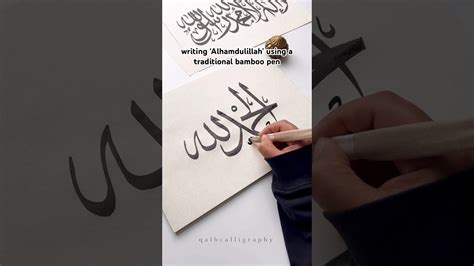 writing 'Alhamdulillah' using a
traditional bamboo pen
الحمد لله
qalbcalligraphy